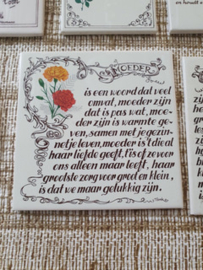 MOEDER
is een woord dat veel
omvat, moeder zijn
dat is pas wat, moe-
der zijn is warmte ge-
ven, samen met je gezin-
netje leven, moeder is 't die al
haar liefde geeft. 't is of ze voor
ons alleen maar leeft, haar
grootste zorg voor groot en klein,
is dat we maar gelukkig zijn.